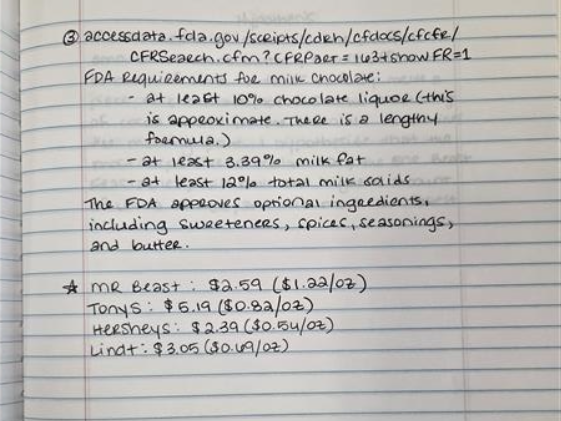 ③ accessdata.fda.gov/scripts/cdrh/cfdocs/cfcfr/
CFRSearch.cfm?CFRPart=163&showFR=1
FDA Requirements for milk chocolate:
- at least 10% chocolate liquor (this
is approximate. There is a lengthy
formula.)
- at least 3.39% milk fat
- at least 12% total milk solids
The FDA approves optional ingredients,
including sweeteners, spices, seasonings,
and butter.
☆ MR Beast : $2.59 ($1.22/oz)
Tonys : $5.19 ($0.82/oz)
Hersheys : $2.39 ($0.54/oz)
Lindt : $3.05 ($0.69/oz)